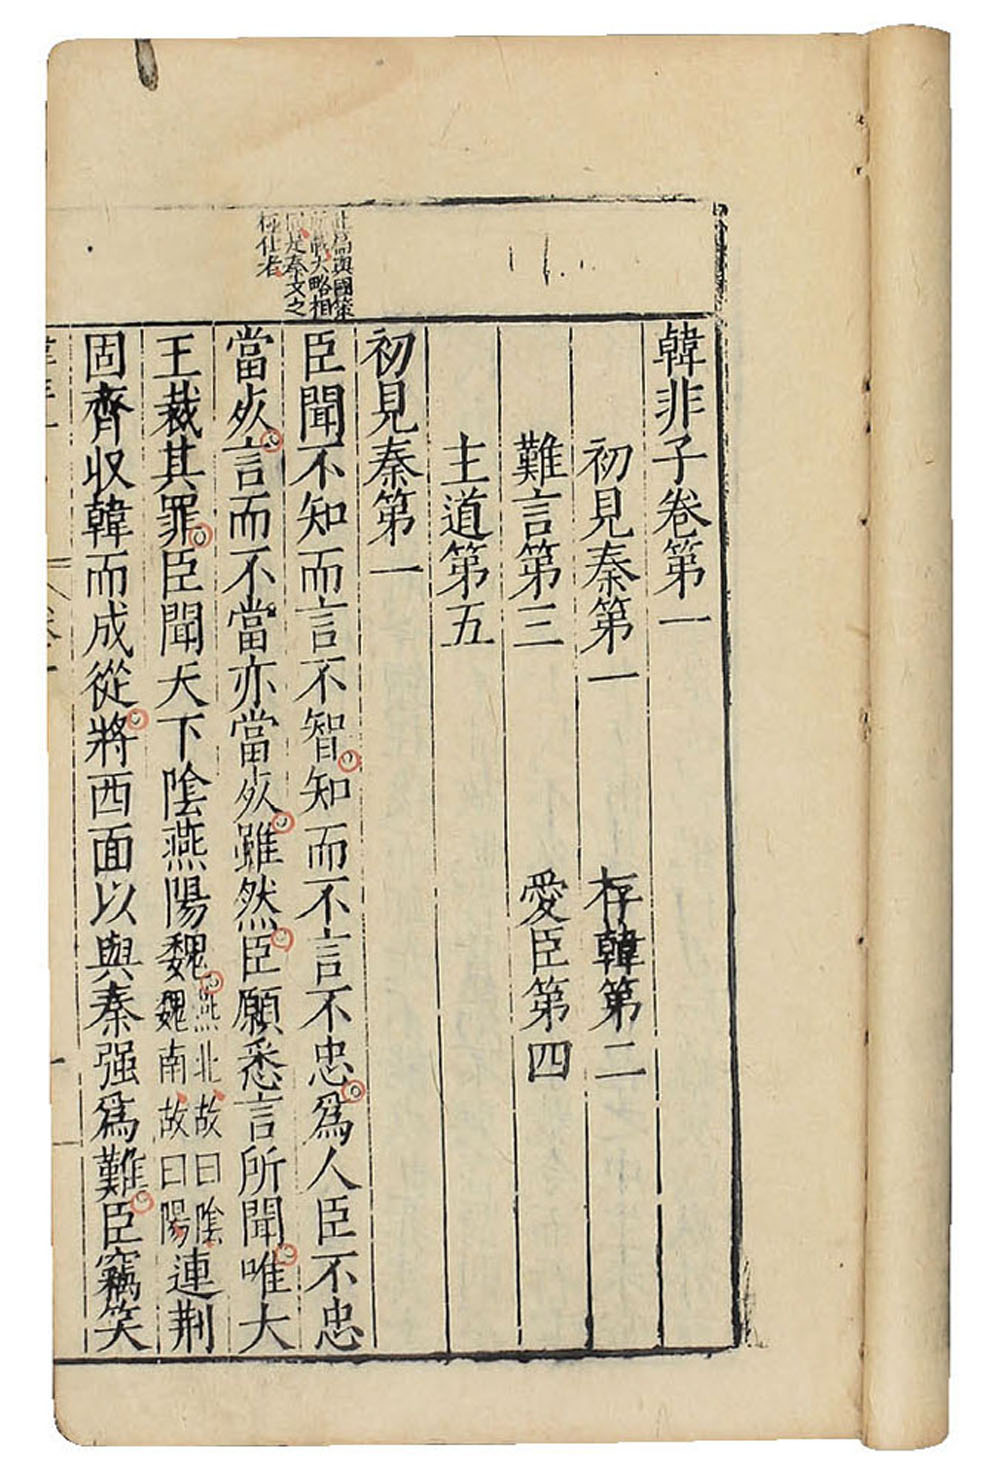 韓非子卷第一
初見秦第一　存韓第二
難言第三　愛臣第四
主道第五
初見秦第一
與國策
大略相
是秦文之
者
臣聞不知而言不智知而不言不忠爲人臣不忠
當死言而不當亦當死雖然臣願悉言所聞唯大
王裁其罪臣聞天下陰燕陽魏燕北故曰陰魏南故曰陽連荆
固齊収韓而成從將西面以與秦强爲難臣竊笑